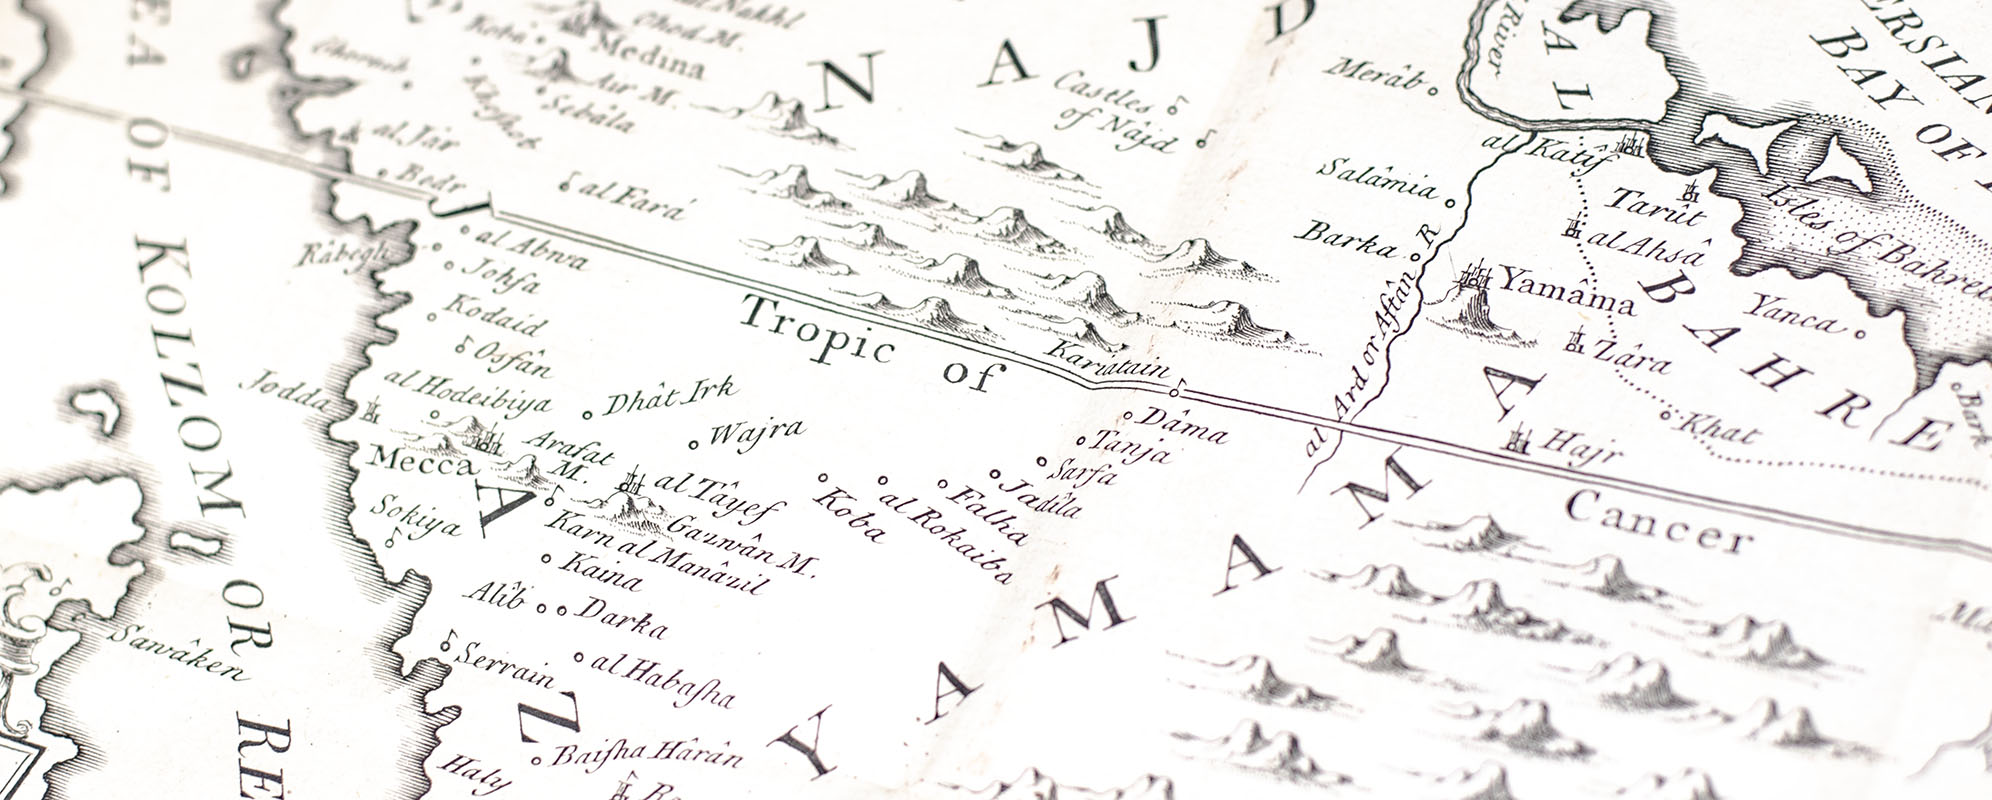 Nakhl
Chod M.
Koba
Medina
Air M.
Sebâla
al Jâr
Bedr
al Fará
N A J D
Castles
of Nâjd
Merâb
River
AL
PERSIAN
BAY OF
al Katîf
Salâmia
Tarût
Isles of Bahre
Barka
al Ahsâ
Yamâma
al Ard or Aftân R
B A H R E
Yanca
Zâra
Khat
Bark
Hajr
SEA OF KOLZOM OR RE
Râbegh
al Abwa
Johfa
Kodaid
Osfân
Jodda
al Hodeibiya
Dhât Irk
Wajra
Tropic of
Cancer
Kariatain
Dâma
Tanja
Sarfa
Jadîla
Falha
al Rokaiba
Koba
Arafat
M.
Mecca
al Tâyef
Gazwân M.
Sokiya
Karn al Manâzil
Kaina
Alîb
Darka
Serrain
al Habaſha
Sawâken
Baiſha Hârân
Haly
A
Z
Y A M A M A